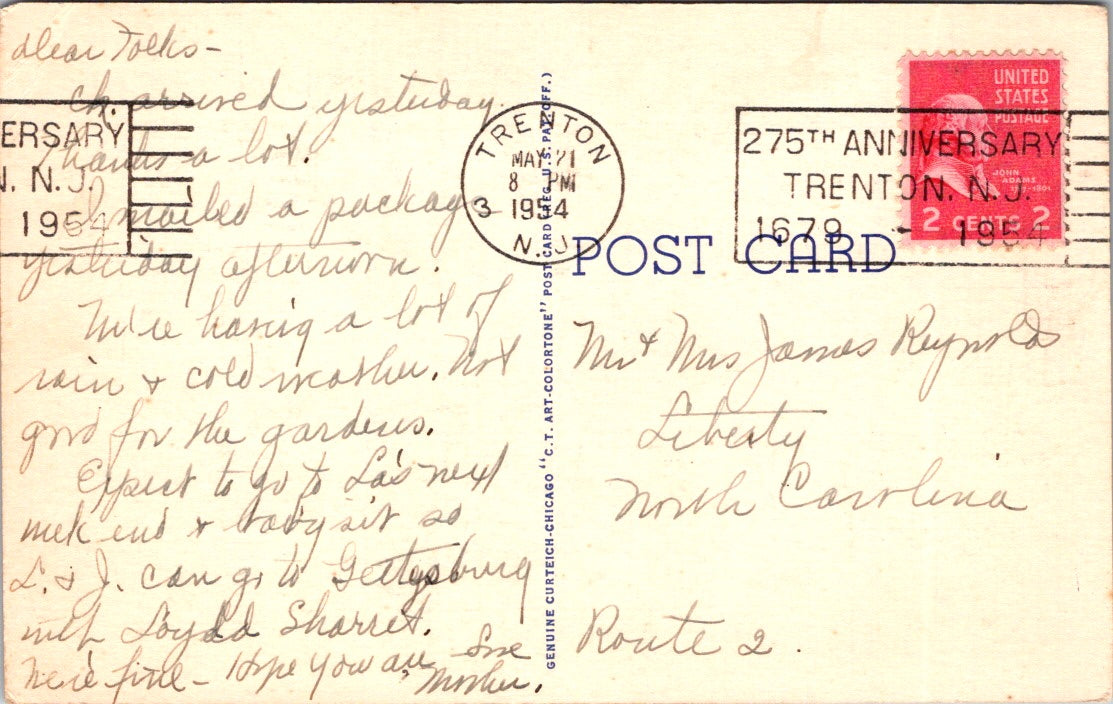 dear Folks -
Ck. arrived yesterday.
Thanks a lot.
I mailed a package
yesterday afternoon.
We're having a lot of
rain & cold weather. Not
good for the gardens.
Expect to go to La's next
week end & baby sit so
L. & J. can go to Gettysburg
with Loyd & Sharret.
We're fine - Hope you are. Love
Mother.
ERSARY
N. N.J.
1954
TRENTON
MAY 21
8 PM
3 1954
N.J.
275TH ANNIVERSARY
TRENTON, N.J.
1679 - 1954
UNITED
STATES
POSTAGE
JOHN
ADAMS
1797-1801
2 CENTS 2
POST CARD
GENUINE CURTEICH-CHICAGO "C.T. ART-COLORTONE" POST CARD (REG. U.S. PAT. OFF.)
Mr & Mrs James Reynolds
Liberty
North Carolina
Route 2.